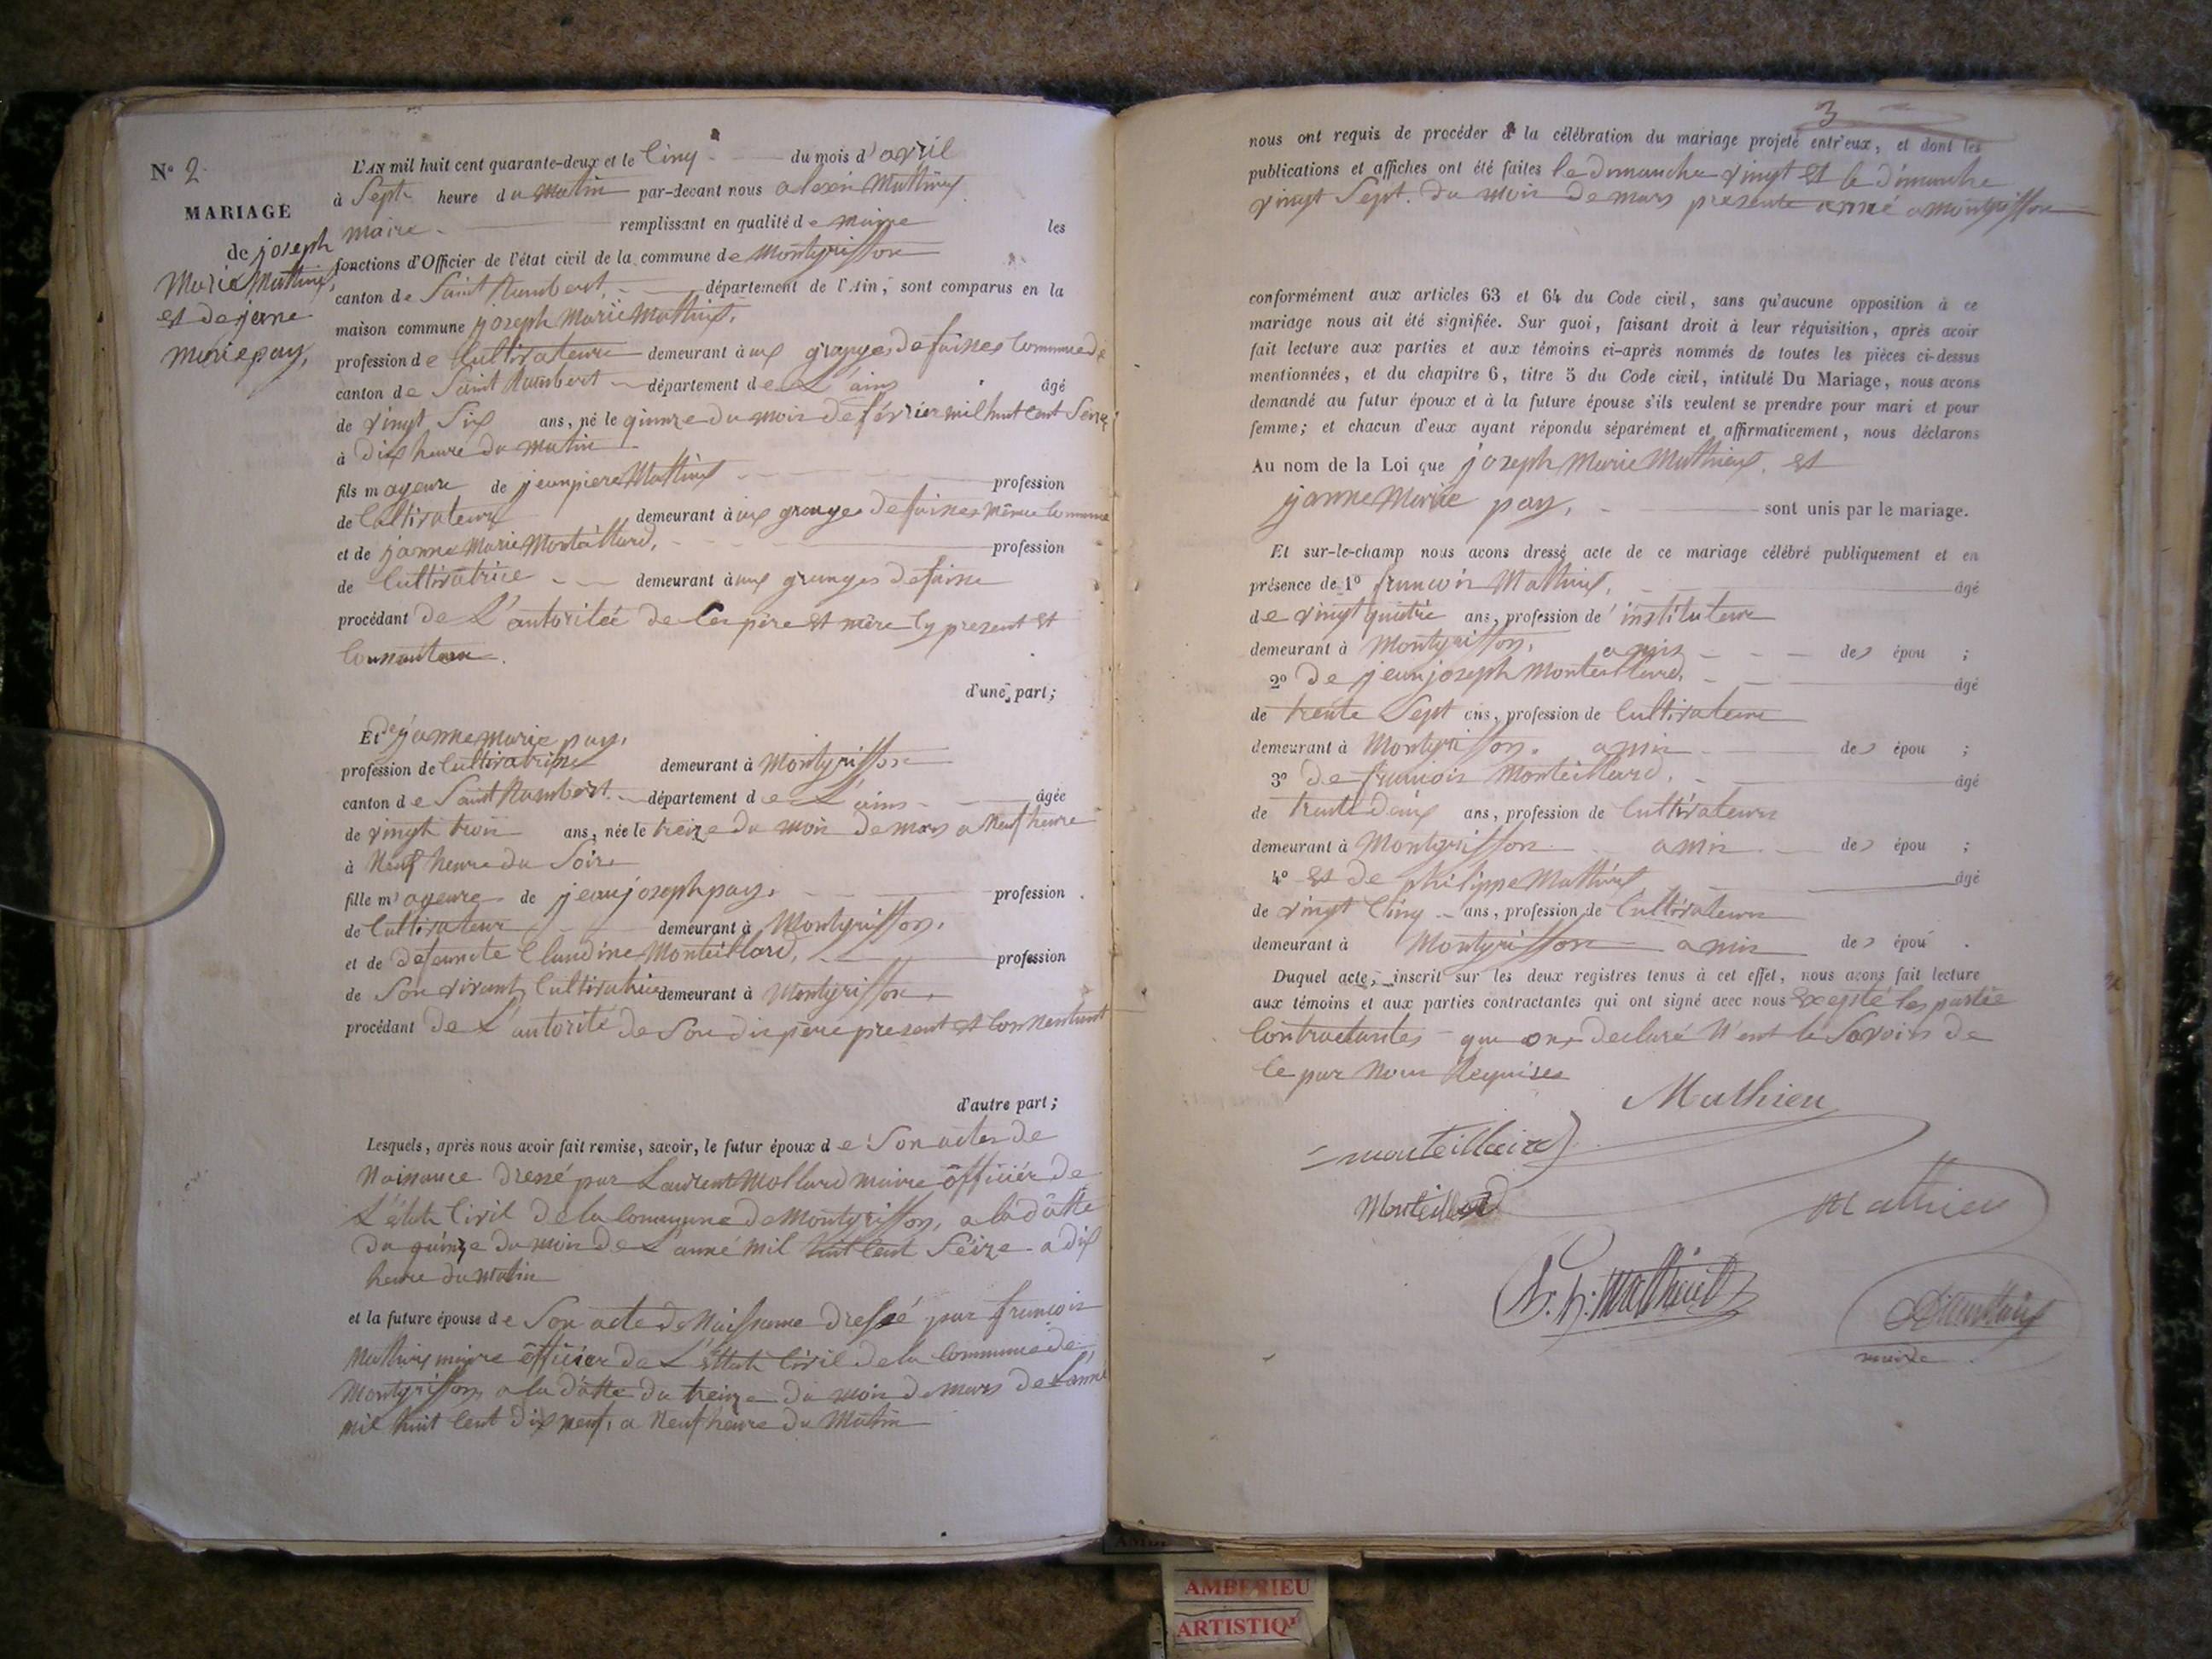 N° 2
MARIAGE
de joseph
Marie Mathieux,
et de jeane
marie pay,
L'AN mil huit cent quarante-deux et le Cinq du mois d'avril
à Sept heure du matin par-devant nous alexis Mathieux
maire remplissant en qualité de maire les
fonctions d'Officier de l'état civil de la commune de Montgriffon
canton de Saint Rambert département de l'Ain, sont comparus en la
maison commune joseph Marie Mathieux,
profession de Cultivateure demeurant à aux granges de faisnes Commune de
canton de Saint Rambert département de L'ains âgé
de vingt Six ans, né le quinze du mois de février mil huit cent Seize
à Dix heure du matin
fils mageure de jeanpiere Mathieux profession
de Cultivateure demeurant à aux granges de faisnes même Commune
et de janne Marie Monteillard, profession
de Cultivatrice demeurant à aux granges de faisne
procédant de L'autoritée de Ces père et mère Cy present et
d'une part;
Et de janne marie pay,
profession de Cultivatrice demeurant à Montgriffon
canton de Saint Rambert département de L'ains âgée
de vingt trois ans, née le treize du mois de mars a Neuf heure
à Neuf heure du Soire
fille mageure de jeanjoseph pay, profession
de Cultivateur demeurant à Montgriffon,
et de defuncte Claudine Monteillard, profession
de Son vivant Cultivatrice demeurant à Montgriffon,
procédant de L'autorité de Son dis père present et Consentant
d'autre part;
Lesquels, après nous avoir fait remise, savoir, le futur époux de Son actes de
Naisance dressé par Laurent Mollard maire officier de
L'état Civil de la Commune de Montgriffon, a la datte
du quinze du mois de L'anné mil huit Cent Séize a dix
heure du matin
et la future épouse de Son acte de Naissance dressé par françois
Mathieux maire officier de L'Ettat Civil de la Commune de
Montgriffon a la datte du treize du mois de mars de L'anné
mil huit Cent dix neuf, a Neuf heure du Matin
3
nous ont requis de procéder à la célébration du mariage projeté entr'eux, et dont les
publications et affiches ont été faites le dimanche vingt et le dimanche
vingt Sept du mois de mars presente anné a montgriffon
conformément aux articles 63 et 64 du Code civil, sans qu'aucune opposition à ce
mariage nous ait été signifiée. Sur quoi, faisant droit à leur réquisition, après avoir
fait lecture aux parties et aux témoins ci-après nommés de toutes les pièces ci-dessus
mentionnées, et du chapitre 6, titre 5 du Code civil, intitulé Du Mariage, nous avons
demandé au futur époux et à la future épouse s'ils veulent se prendre pour mari et pour
femme; et chacun d'eux ayant répondu séparément et affirmativement, nous déclarons
Au nom de la Loi que joseph Marie Mathieux, et
janne Marie pay, sont unis par le mariage.
Et sur-le-champ nous avons dressé acte de ce mariage célébré publiquement et en
présence de 1° françois Mathieux, âgé
de vingt quatre ans, profession de instituteur
demeurant à Montgriffon, amis des épou ;
2° De jeanjoseph Monteillard, âgé
de trente Sept ans, profession de Cultivateure
demeurant à Montgriffon, amis des épou ;
3° De françois Monteillard, âgé
de trente deux ans, profession de Cultivateurs
demeurant à Montgriffon amis des épou ;
4° et de philippe Mathieux âgé
de vingt Cinq ans, profession de Cultivateurs
demeurant à Montgriffon amis des épou .
Duquel acte, inscrit sur les deux registres tenus à cet effet, nous avons fait lecture
aux témoins et aux parties contractantes qui ont signé avec nous Excepté les partie
Contractantes que ons declaré N'ent le Savoirs de
Ce par Nous Requises
Mathieu
monteillaird
Monteillard
Mathieu
Mathieux
maire
AMBERIEU
ARTISTIQ